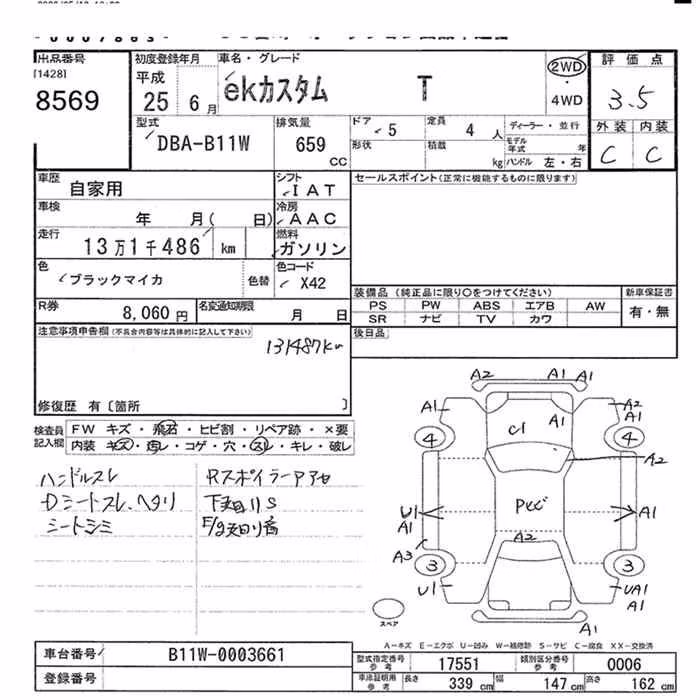 出品番号
[1428]
8569
初度登録年月
平成
25 6月
車名・グレード
ekカスタム T
2WD
・
4WD
評価点
3.5
外装 内装
C C
型式
DBA-B11W
排気量
659
CC
ドア 5
定員 4 人
形状
積載 kg
ディーラー・並行
モデル年式 年
ハンドル 左・右
車歴
自家用
シフト
IAT
セールスポイント(正常に機能するものに限ります)
車検
年 月( 日)
冷房
AAC
走行
13万1千486 km
燃料
ガソリン
色
ブラックマイカ
色替
色コード
X42
R券
8,060円
名変通知期限
月 日
装備品 (純正品に限り○をつけてください)
PS PW ABS エアB AW
SR ナビ TV カワ
新車保証書
有・無
後日品
注意事項申告欄(不具合内容等は具体的に記入して下さい)
131487km
修復歴 有〔箇所 〕
検査員
記入欄
FW キズ・飛石・ヒビ割・リペア跡・×要
内装 キズ・汚レ・コゲ・穴・スレ・キレ・破レ
ハンドルスレ
Dシートスレ、ヘタリ
シートシミ
Rスポイラーアアセ
A2 A1 A1
A1 C1 A1 A2 A1
4 4
A2
U1 A1
A1
A3
A2
3 3
U1 UA1
A1
A1
スペア
A-キズ E-エクボ U-凹み W-補修跡 S-サビ C-腐食 XX-交換済
車台番号
B11W-0003661
登録番号
型式指定番号
参考
17551
類別区分番号
参考
0006
車庫証明用
参考
長さ 339 cm
幅 147 cm
高さ 162 cm